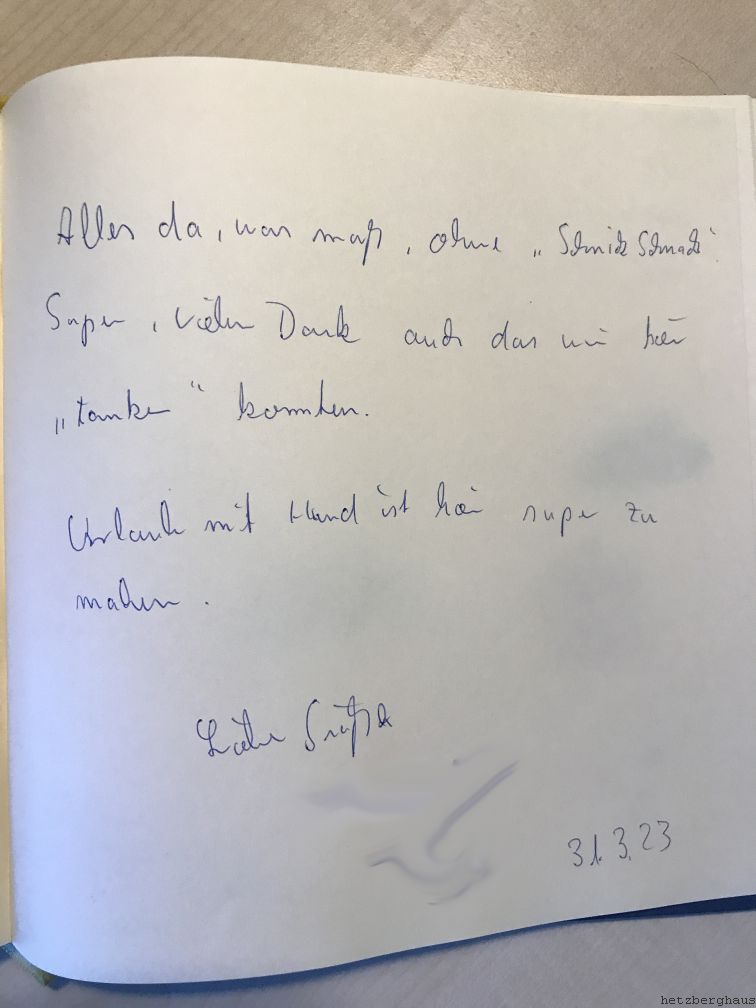 Alles da, was muß, ohne „Schnick Schnack“.
Super, vielen Dank auch das wir hier
„tanken“ konnten.
Urlaub mit Hund ist hier super zu
machen.
Liebe Grüße
31.3.23
hetzberghaus